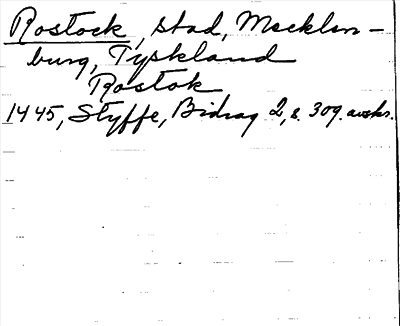 Rostock, stad, Mecklen-
burg, Tyskland
Rostok
1445, Styffe, Bidrag 2, s. 309. avskr.